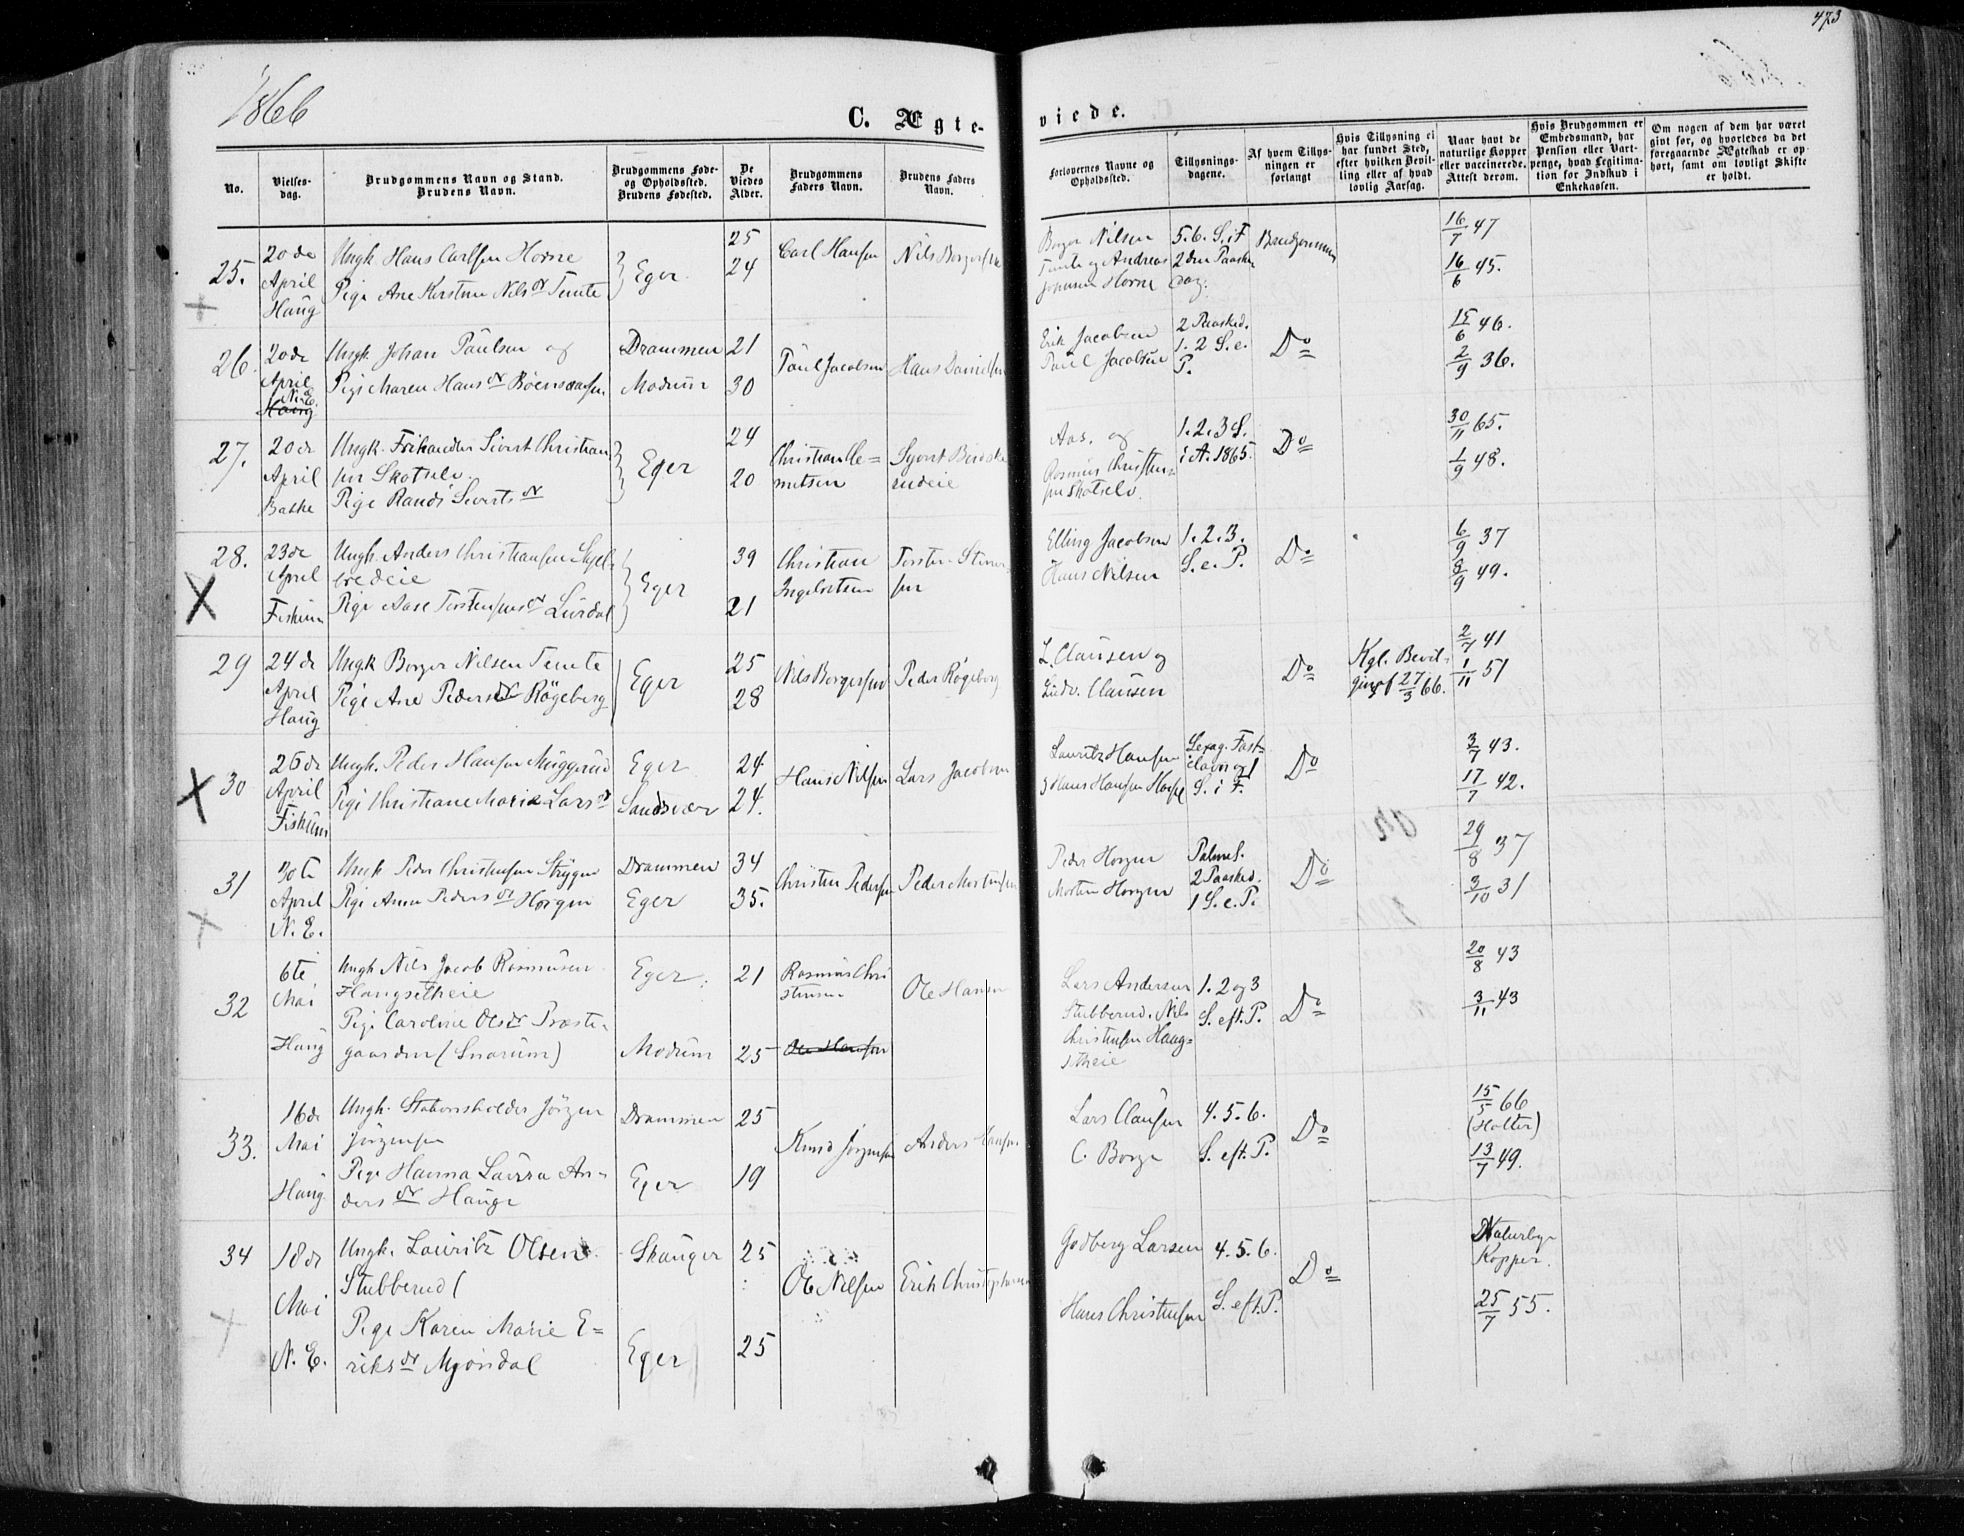 473
1866
C. Ægte-
viede.
No.
Vielses-
dag.
Brudgommens Navn og Stand.
Brudens Navn.
Brudgommens Føde-
og Opholdssted.
Brudens Fødested.
De
Viedes
Alder.
Brudgommens
Faders Navn.
Brudens Faders
Navn.
Forlovernes Navne og
Opholdssted.
Tillysnings-
dagene.
Af hvem Tillys-
ningen er
forlangt
Hvis Tillysning ei
har fundet Sted,
efter hvilken Bevil-
ling eller af hvad
lovlig Aarsag.
Naar havt de
naturlige Kopper
eller vaccinerede.
Attest derom.
Hvis Brudgommen er
Embedsmand, har
Pension eller Vart-
penge, hvad Legitima-
tion for Indskud i
Enkekassen.
Om nogen af dem har været
gift før, og hvorledes da det
foregaaende Ægteskab er op-
hørt, samt om lovligt Skifte
er holdt.
25.
20de
April
Haug
Ungk. Hans Carlsen Horne
Pige Ane Kirstine Nilsdr Temte
Eger
25
24
Carl Hansen
Nils Borgersen
Borger Nilsen
Temte og Andreas
Johnsen Horne
5. 6. S. i F
2den Paaske
Dag.
Brudgommen
16/7 47
16/6 45.
26.
20de
April
N. E.
Haug
Ungk. Johan Paulsen og
Pige Maren Hansdr
Drammen
Modum
21
30
Paul Jacobsen
Hans Danielsen
Erik Jacobsen
Paul Jacobsen
2 Paasked.
1. 2 S. e.
P.
Do
15/6 46.
2/9 36.
27.
20de
April
Bakke
Ungk. Frihandler Sivert Christian
sen Skotselv
Pige Randi Sivertsdr
Eger
24
20
Christian Cle=
metsen
Syvert
eie
Aas. og
Rasmus Christen=
sen Skotselv.
1. 2. 3 S.
i A. 1865.
Do
30/11 65.
1/9 48.
28.
23de
April
Fiskum
Ungk. Anders Christiansen
bredeie
Pige Aase Torstensensdr Lurdal
Eger
39
21
Christian
Ingebretsen
Torsten Stener
sen
Elling Jacobsen
Hans Nilsen
1. 2. 3.
S. e. P.
Do
6/9 37
8/9 49.
29
24de
April
Haug
Ungk Borger Nilsen Temte
Pige Ane Pedersdr Røgeberg
Eger
25
28
Nils Borgersen
Peder Røgeberg
L. Clausen og
Ludv. Clausen
Do
Kgl. Bevil-
ging af 27/3 66.
2/7 41
1/11 51
30
26de
April
Fiskum
Ungk. Peder Hansen Muggerud
Pige Christiane Marie Larsdr
Eger
Sandsvær
24
24.
Hans Nilsen
Lars Jacobsen
Lauritz Hansen
Hans Hansen
Sexag. Fast-
elavn og 1
S. i F.
Do
3/7 43.
17/7 42.
31
30te
April
N. E.
Ungk Peder Christensen Stryger
Pige Anne Pedersdr Horgen
Drammen
Eger
34
35.
Christen Pedersen
Peder Mortensen
Peder Horgen
Morten Horgen
Palmes.
2 Paasked.
1 S. e. P.
Do
29/8 37
3/10 31
32
6te
Mai
Haug
Ungk Nils Jacob Rasmusen
Haugsetheie
Pige Caroline Olsdr Præste-
gaarden (Snarum)
Eger.
Modum
21
25
Rasmus Chri
stensen
Ole Hansen
Ole Hansen
Lars Andersen
Stubberud. Nils
Christensen Haug=
setheie
1. 2 og 3
S. eft. P.
Do
20/8 43
3/11 43
33.
16de
Mai
Haug
Ungk. Stationsholder Jörgen
Jörgensen
Pige Hanna Laura An-
dersdr Hauge
Drammen
Eger
25
19
Knud Jörgensen
Anders Hansen
Lars Clausen
C. Borge
4. 5. 6.
S. eft. P.
Do
15/5 66
(Holter)
13/7 49.
34
18de
Mai
N. E.
Ungk. Lauritz Olsen
Stubberud (
Pige Karen Marie E=
riksdr Mjøndal
Skauger
Eger
25
25
Ole Nilsen
Erik Christophersen
Godberg Larsen
Hans Christensen
4. 5. 6.
S. eft. P.
Do
Naturlige
Kopper.
25/7 55.